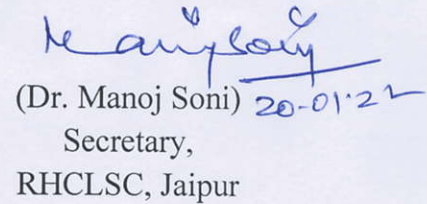 Manoj Soni
(Dr. Manoj Soni) 20-01-22
Secretary,
RHCLSC, Jaipur